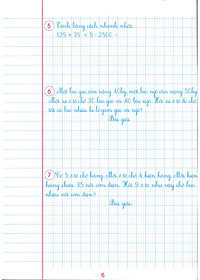 5 Tính bằng cách nhanh nhất:
125 × 15 × 8 - 2500 =
6 Một bao gạo cân nặng 40kg, một bao ngô cân nặng 50kg.
Một xe ô tô chở 30 bao gạo và 40 bao ngô. Hỏi xe ô tô đó chở
tất cả bao nhiêu ki-lô-gam gạo và ngô?
Bài giải
7 Có 5 ô tô chở hàng. Mỗi ô tô chở 4 kiện hàng. Mỗi kiện
hàng chứa 35 nồi cơm điện. Hỏi 5 ô tô như vậy chở bao
nhiêu nồi cơm điện?
Bài giải
6